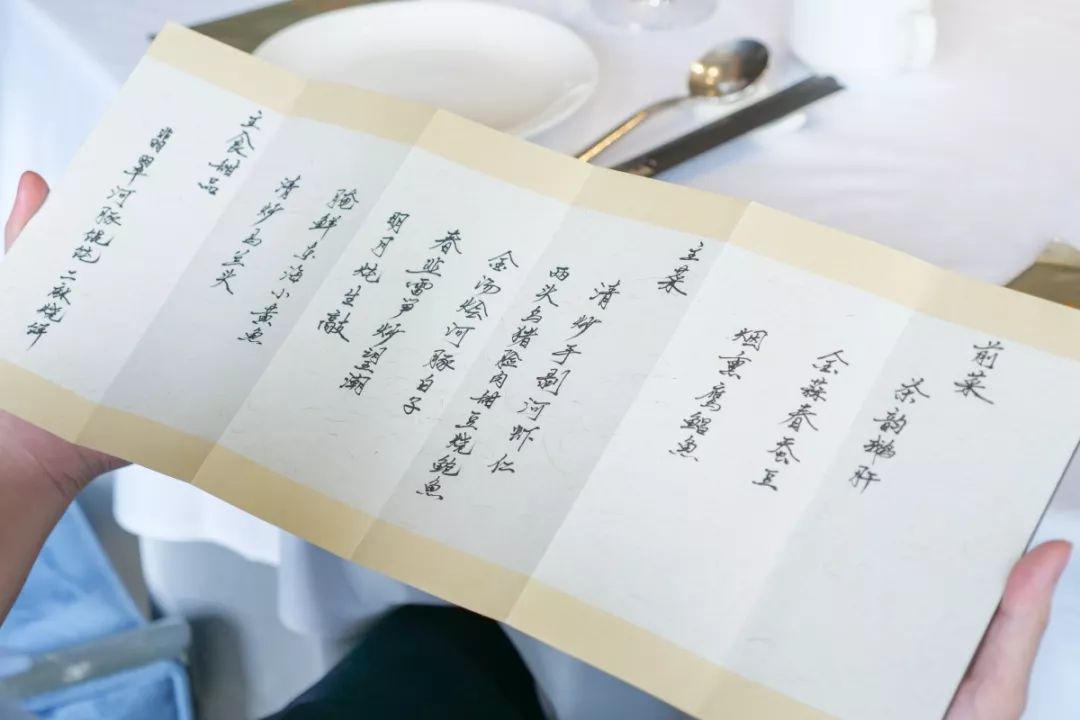 前菜
茶韵鹅肝
金蒜春蚕豆
烟熏鹰鲳鱼
主菜
清炒手剥河虾仁
两头乌猪脸肉甜豆烧鲍鱼
金汤烩河豚白子
春韭雷笋炒望潮
明月炖生敲
腌鲜东海小黄鱼
清炒马兰头
主食甜品
翡翠河豚馄饨 二麻烧饼